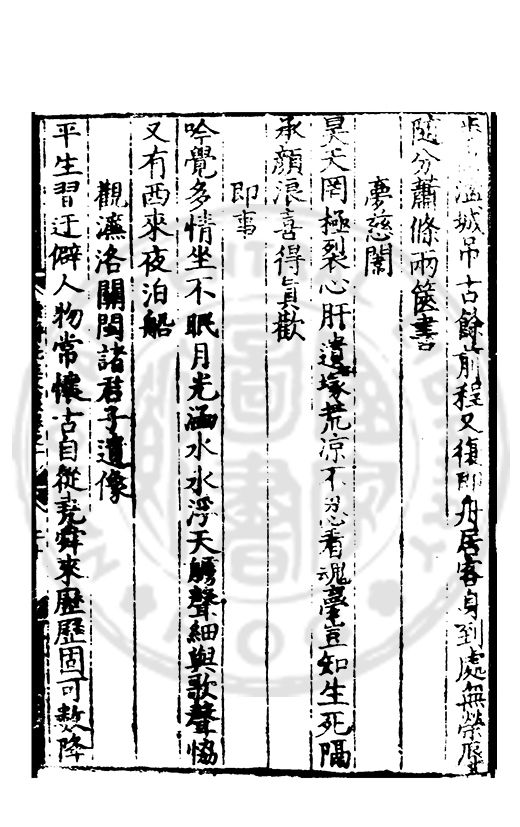 湓城吊古餘前程又復即舟居客身到處無榮辱
隨分蕭條兩篋書
夢慈闈
昊天罔極裂心肝遺塚荒涼不忍看魂夢豈知生死隔
承顏浪喜得真歡
即事
吟覺多情坐不眠月光涵水水浮天艣聲細與歌聲恊
又有西來夜泊船
觀濂洛關閩諸君子遺像
平生習迂僻人物常懷古自從堯舜來歷歷固可數降